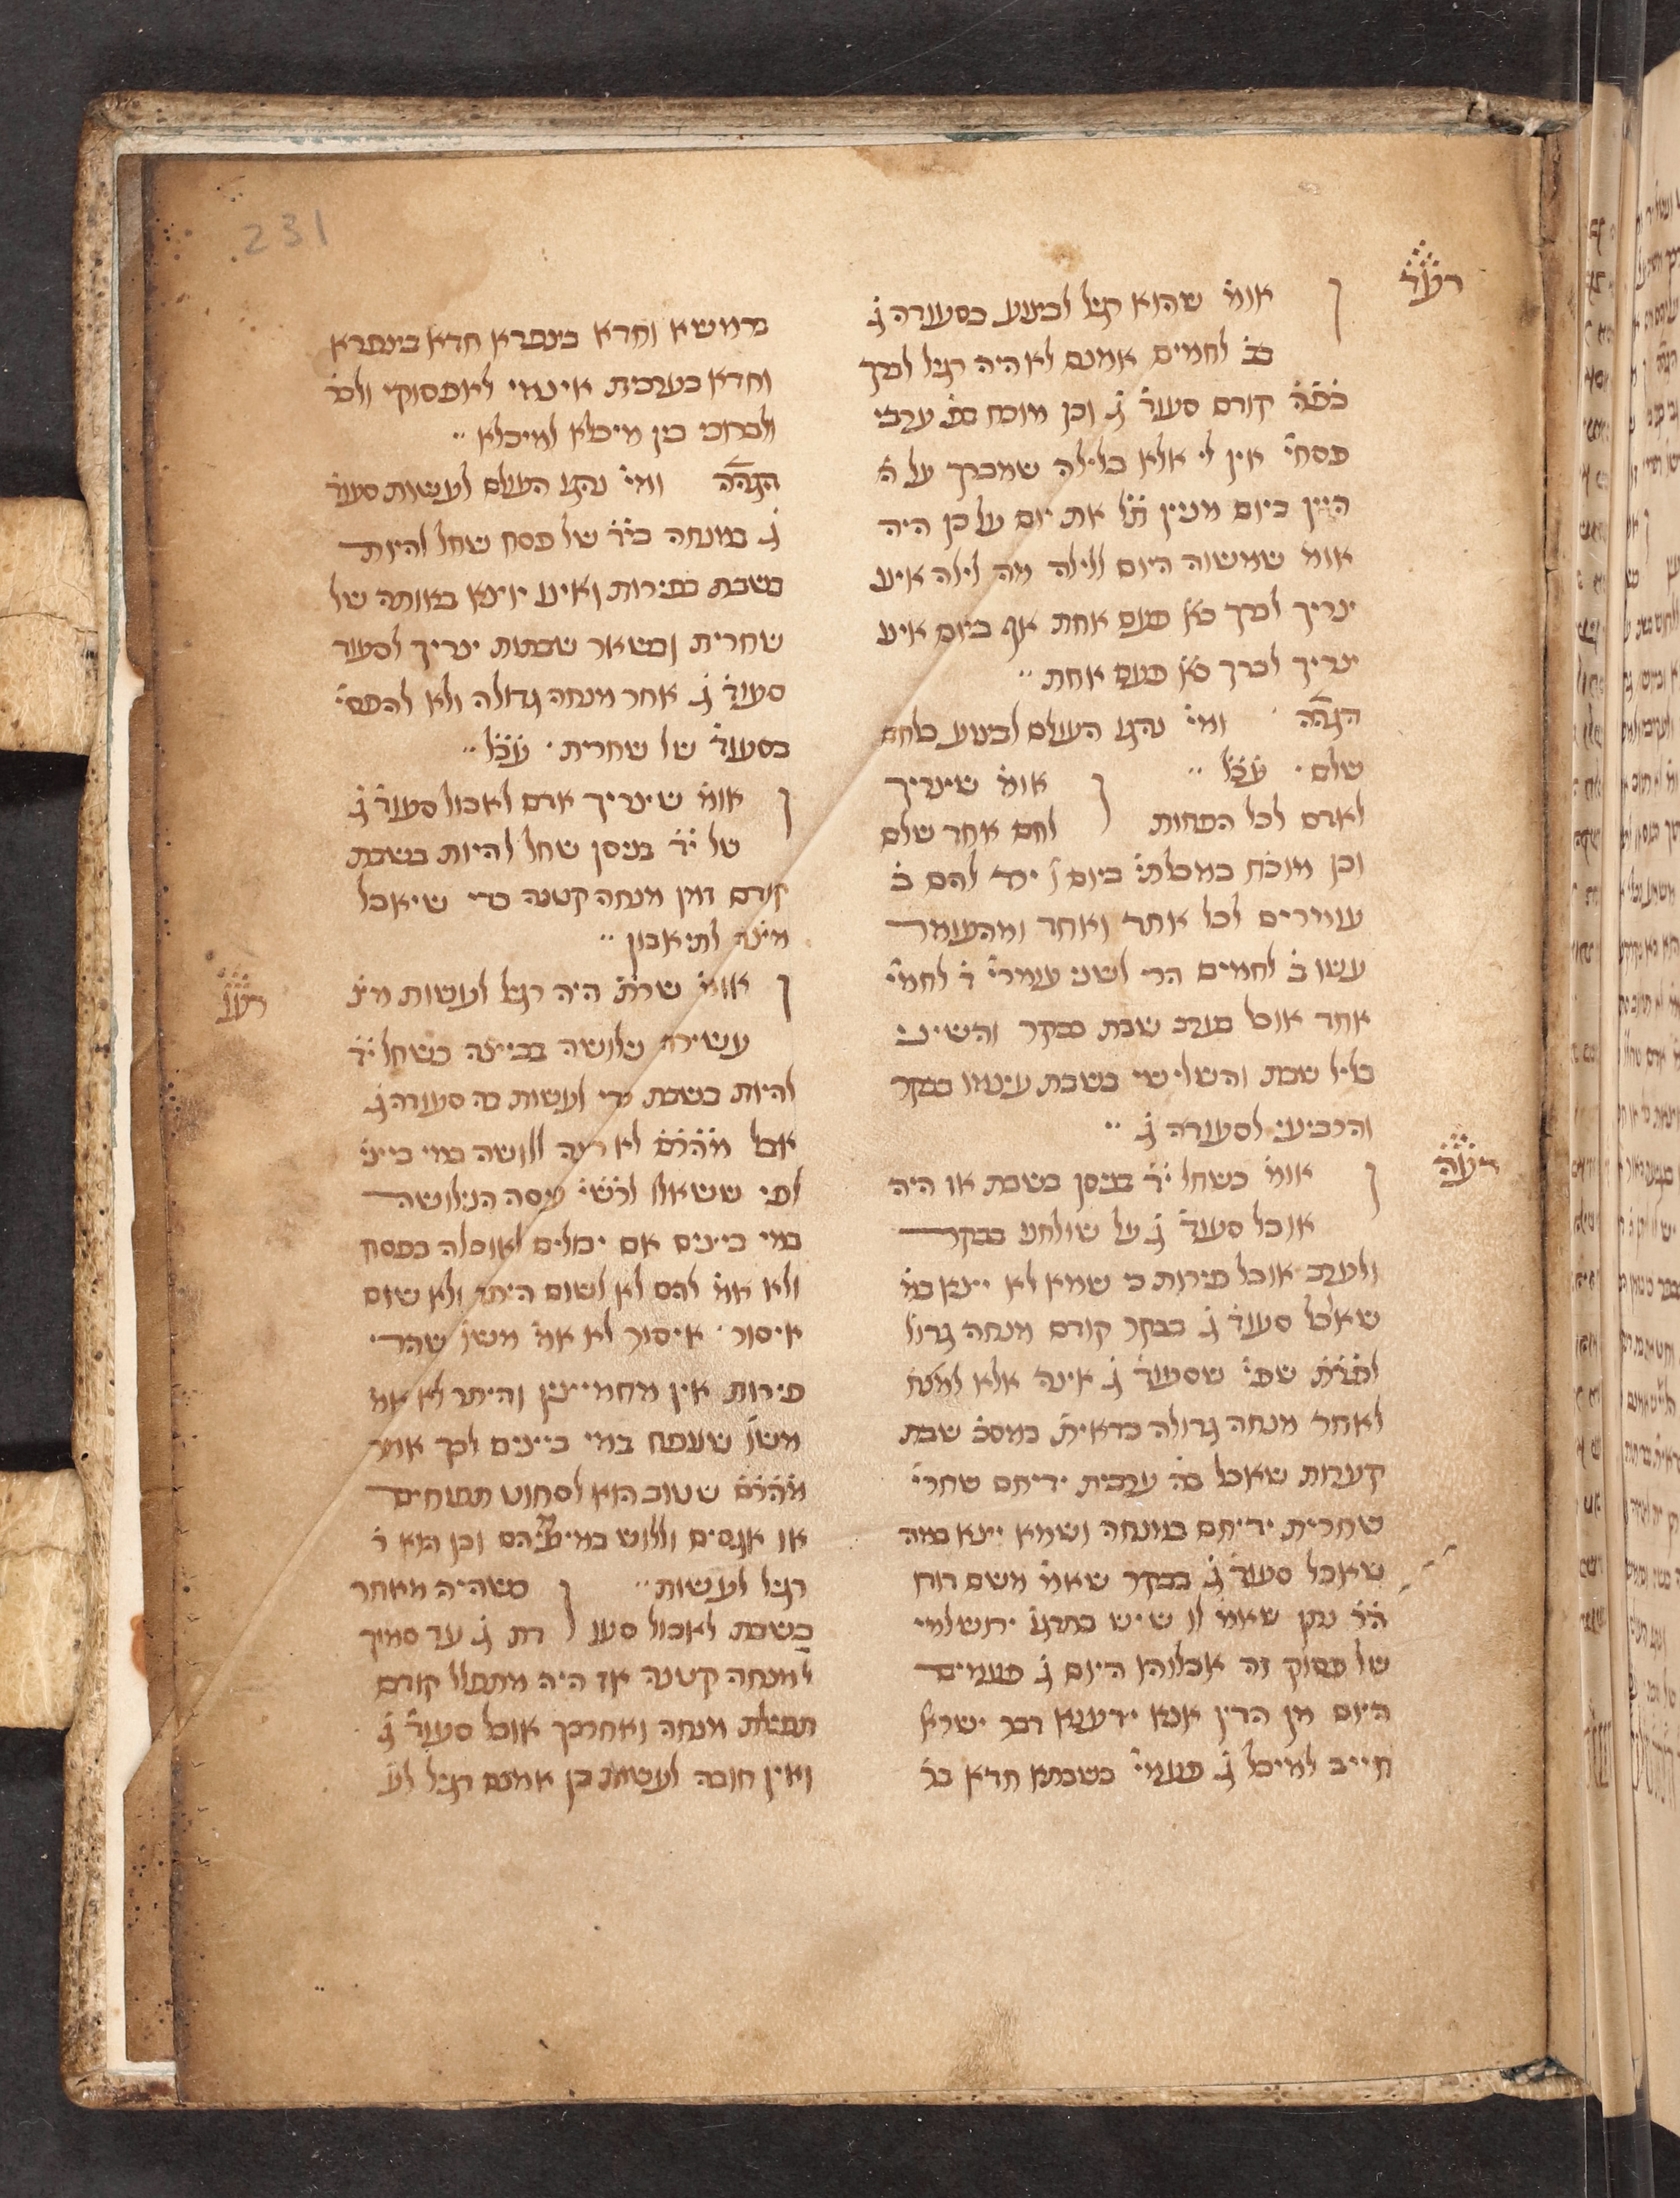 231
רעד
אומ' שהוא רגיל לבצוע בסעודה ג'
בב' לחמים אמנם לא היה רגיל לברך
קודם סעוד' ג' וכן מוכח בפ' ערבי
פסחי' אין לי אלא בלילה שמברך על ה'
היין ביום מניין ת"ל את יום על כן היה
אומ' שמשוה היום ללילה מה לילה אינו
צריך לברך כא' פעם אחת אף ביום אינו
צריך לברך כא' פעם אחת
הגהה ומי' נהגו העולם לבצוע בלחם
שלם ע"כל
אומ' שצריך
לאדם לכל הפחות לחם אחד שלם
וכן מוכח במכלת' ביום ו' ירד להם ב'
עומרים לכל אחד ואחד ומהעומר
עשו ב' לחמים הרי לשני עומרי' ד' לחמי'
אחד אוכל בערב שבת בבקר והשיני
בליל שבת והשלישי בשבת עצמו בבקר
והרביעי לסעודה ג'
רעה
אומ' כשחל י"ד בניסן בשבת אז היה
אוכל סעוד' ג' על שולחנו בבקר
ולערב אוכל פירות כי שמא לא יצא במ'
שאכל סעוד' ג' בבקר קודם מנחה גדול'
שפי' שסעוד' ג' אינה אלא
לאחר מנחה גדולה כדאית' במסכ' שבת
קערות שאכל בה' ערבית ידיחם שחרי'
שחרית ידיחם במנחה ושמא יצא במה
שאכל סעוד' ג' בבקר שאמ' משם רוח
שאמ' לו שיש בתרגו' ירושלמי
של פסוק זה אכלוהו היום ג' פעמים
היום מן הדין אנא ידענא דבר ישרא'
חייב למיכל ג' פעמי' בשבתא חדא בר'
ברמשא וחדא בצפרא חדא בצפרא
וחדא בערבית איצטרי לאפסוקי ולבר'
ולברוכי בין מיכלא למיכלא
הגהה ומי' נהגו העולם לעשות סעוד'
ג' במנחה בי"ד של פסח שחל להיות
בשבת בפירות ואינו יוצא באותה של
שחרית ובשאר שבתות צריך לסעוד
סעוד' ג' אחר מנחה גדולה ולא להפסי'
בסעוד' של שחרית ע"כל
אומ' שצריך אדם לאכול סעוד' ג'
של י"ד בניסן שחל להיות בשבת
קודם זמן מנחה קטנה כדי שיאכל
מצה לתיאבון
רעו
אומ' היה רגיל לעשות מצ'
עשירה נלושה בביצה כשחל י"ד
להיות בשבת כדי לעשות בה סעודה ג'
אבל מהר"ם לא רצה ללושה במי ביצי'
לפי ששאלו לרש"י עיסה הנילושה
במי ביצים אם יכולים לאוכלה בפסח
ולא אמ' להם לא לשום היתר ולא שום
איסור איסור לא אמ' משו' שהרי
פירות אין מחמיצין והיתר לא אמ'
משו' שנפח במי ביצים לכך אמר
מהר"ם שטוב הוא לסחוט תפוחים
או אגסים וללוש במימיהם וכן הוא ד'
רגיל לעשות כשהיה מאחר
בשבת לאכול סעו דת ג' עד סמוך
למנחה קטנה אז היה מתפלל קודם
תפלת מנחה ואחרכך אוכל סעוד' ג'
ואין חובה לעשות כן אמנם רגיל לע'